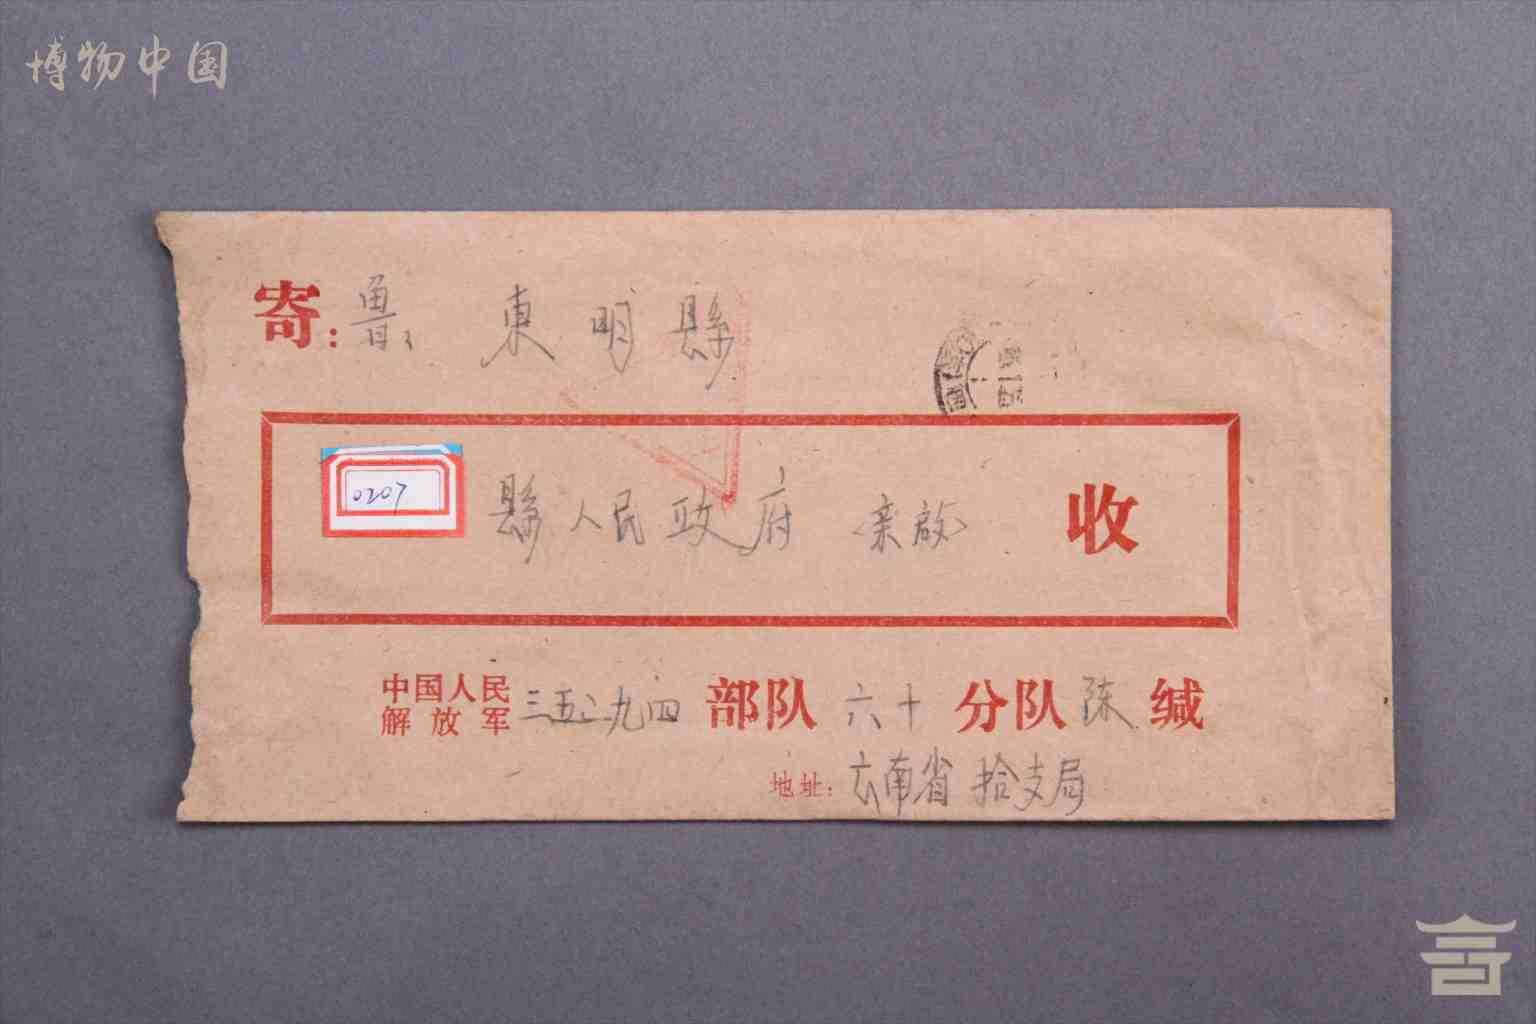 博物中国
寄：魯：東明縣
0207
縣人民政府 亲啟 收
中国人民解放军三五二九四部队六十分队陈缄
地址：云南省拾支局